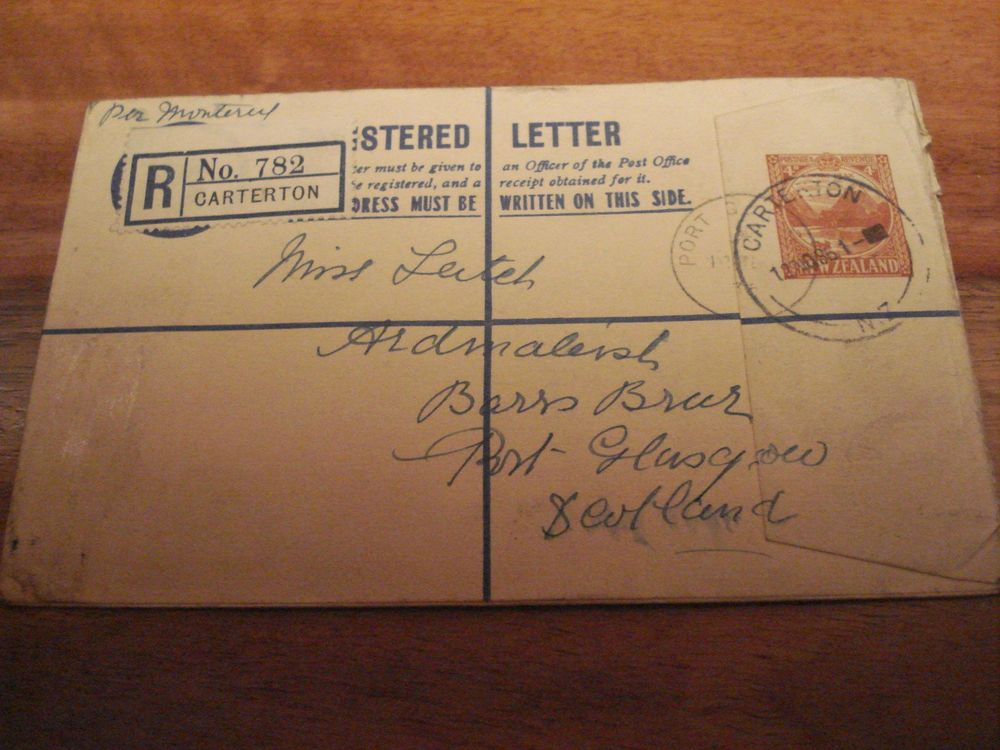 Per Monterey
STERED LETTER
R No. 782
CARTERTON
er must be given to an Officer of the Post Office
e registered, and a receipt obtained for it.
DRESS MUST BE WRITTEN ON THIS SIDE.
POSTAGE & REVENUE
NEW ZEALAND
CARTERTON
N.Z
PORT
Miss Leitch
Ardmaleish
Barrs Brae
Port Glasgow
Scotland